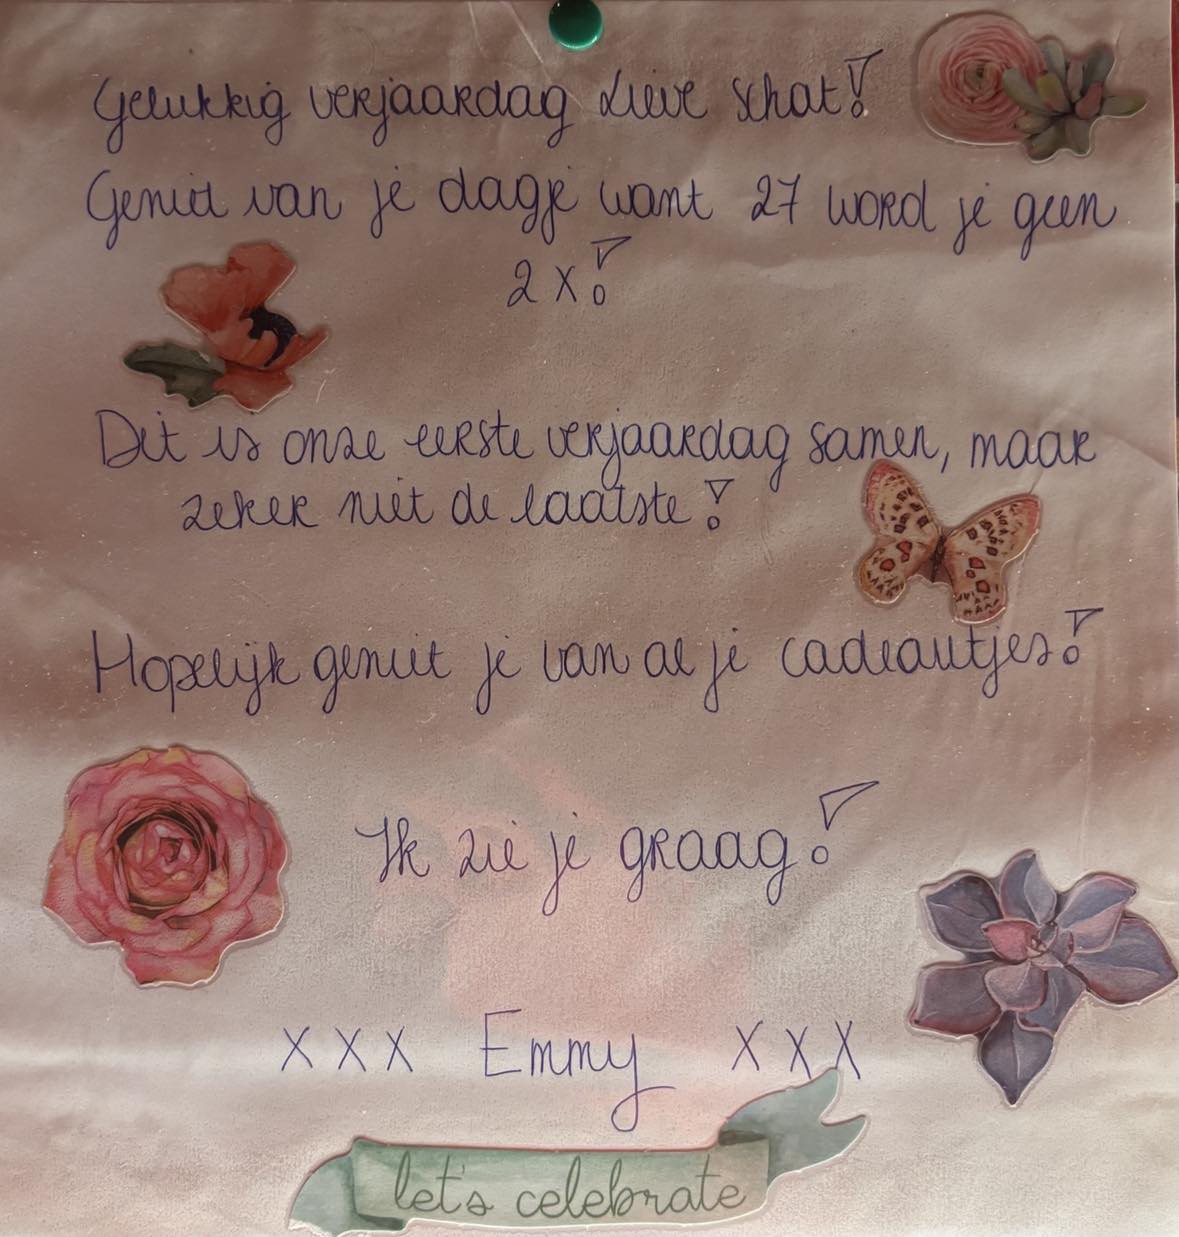 Gelukkig verjaardag Lieve schat!
Geniet van je dagje want 27 word je geen
2 x!
Dit is onze eerste verjaardag samen, maar
zeker niet de laatste!
Hopelijk geniet je van al je cadeautjes!
Ik zie je graag!
x x x Emmy x x x
let's celebrate